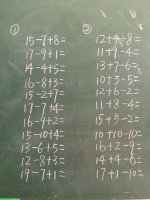 ①
15-7+8=
17-9+1=
14-4+5=
16-8+3=
15-2+7=
17-7+4=
16-9+2=
15-10+4=
13-6+5=
12-8+3=
19-7+1=
②
12+4-8=
11+9-4=
13+7-6=
10+5-5=
12+6-2=
11+8-4=
15+5-2=
10+10-10=
16+2-9=
14+4-6=
17+1-10=